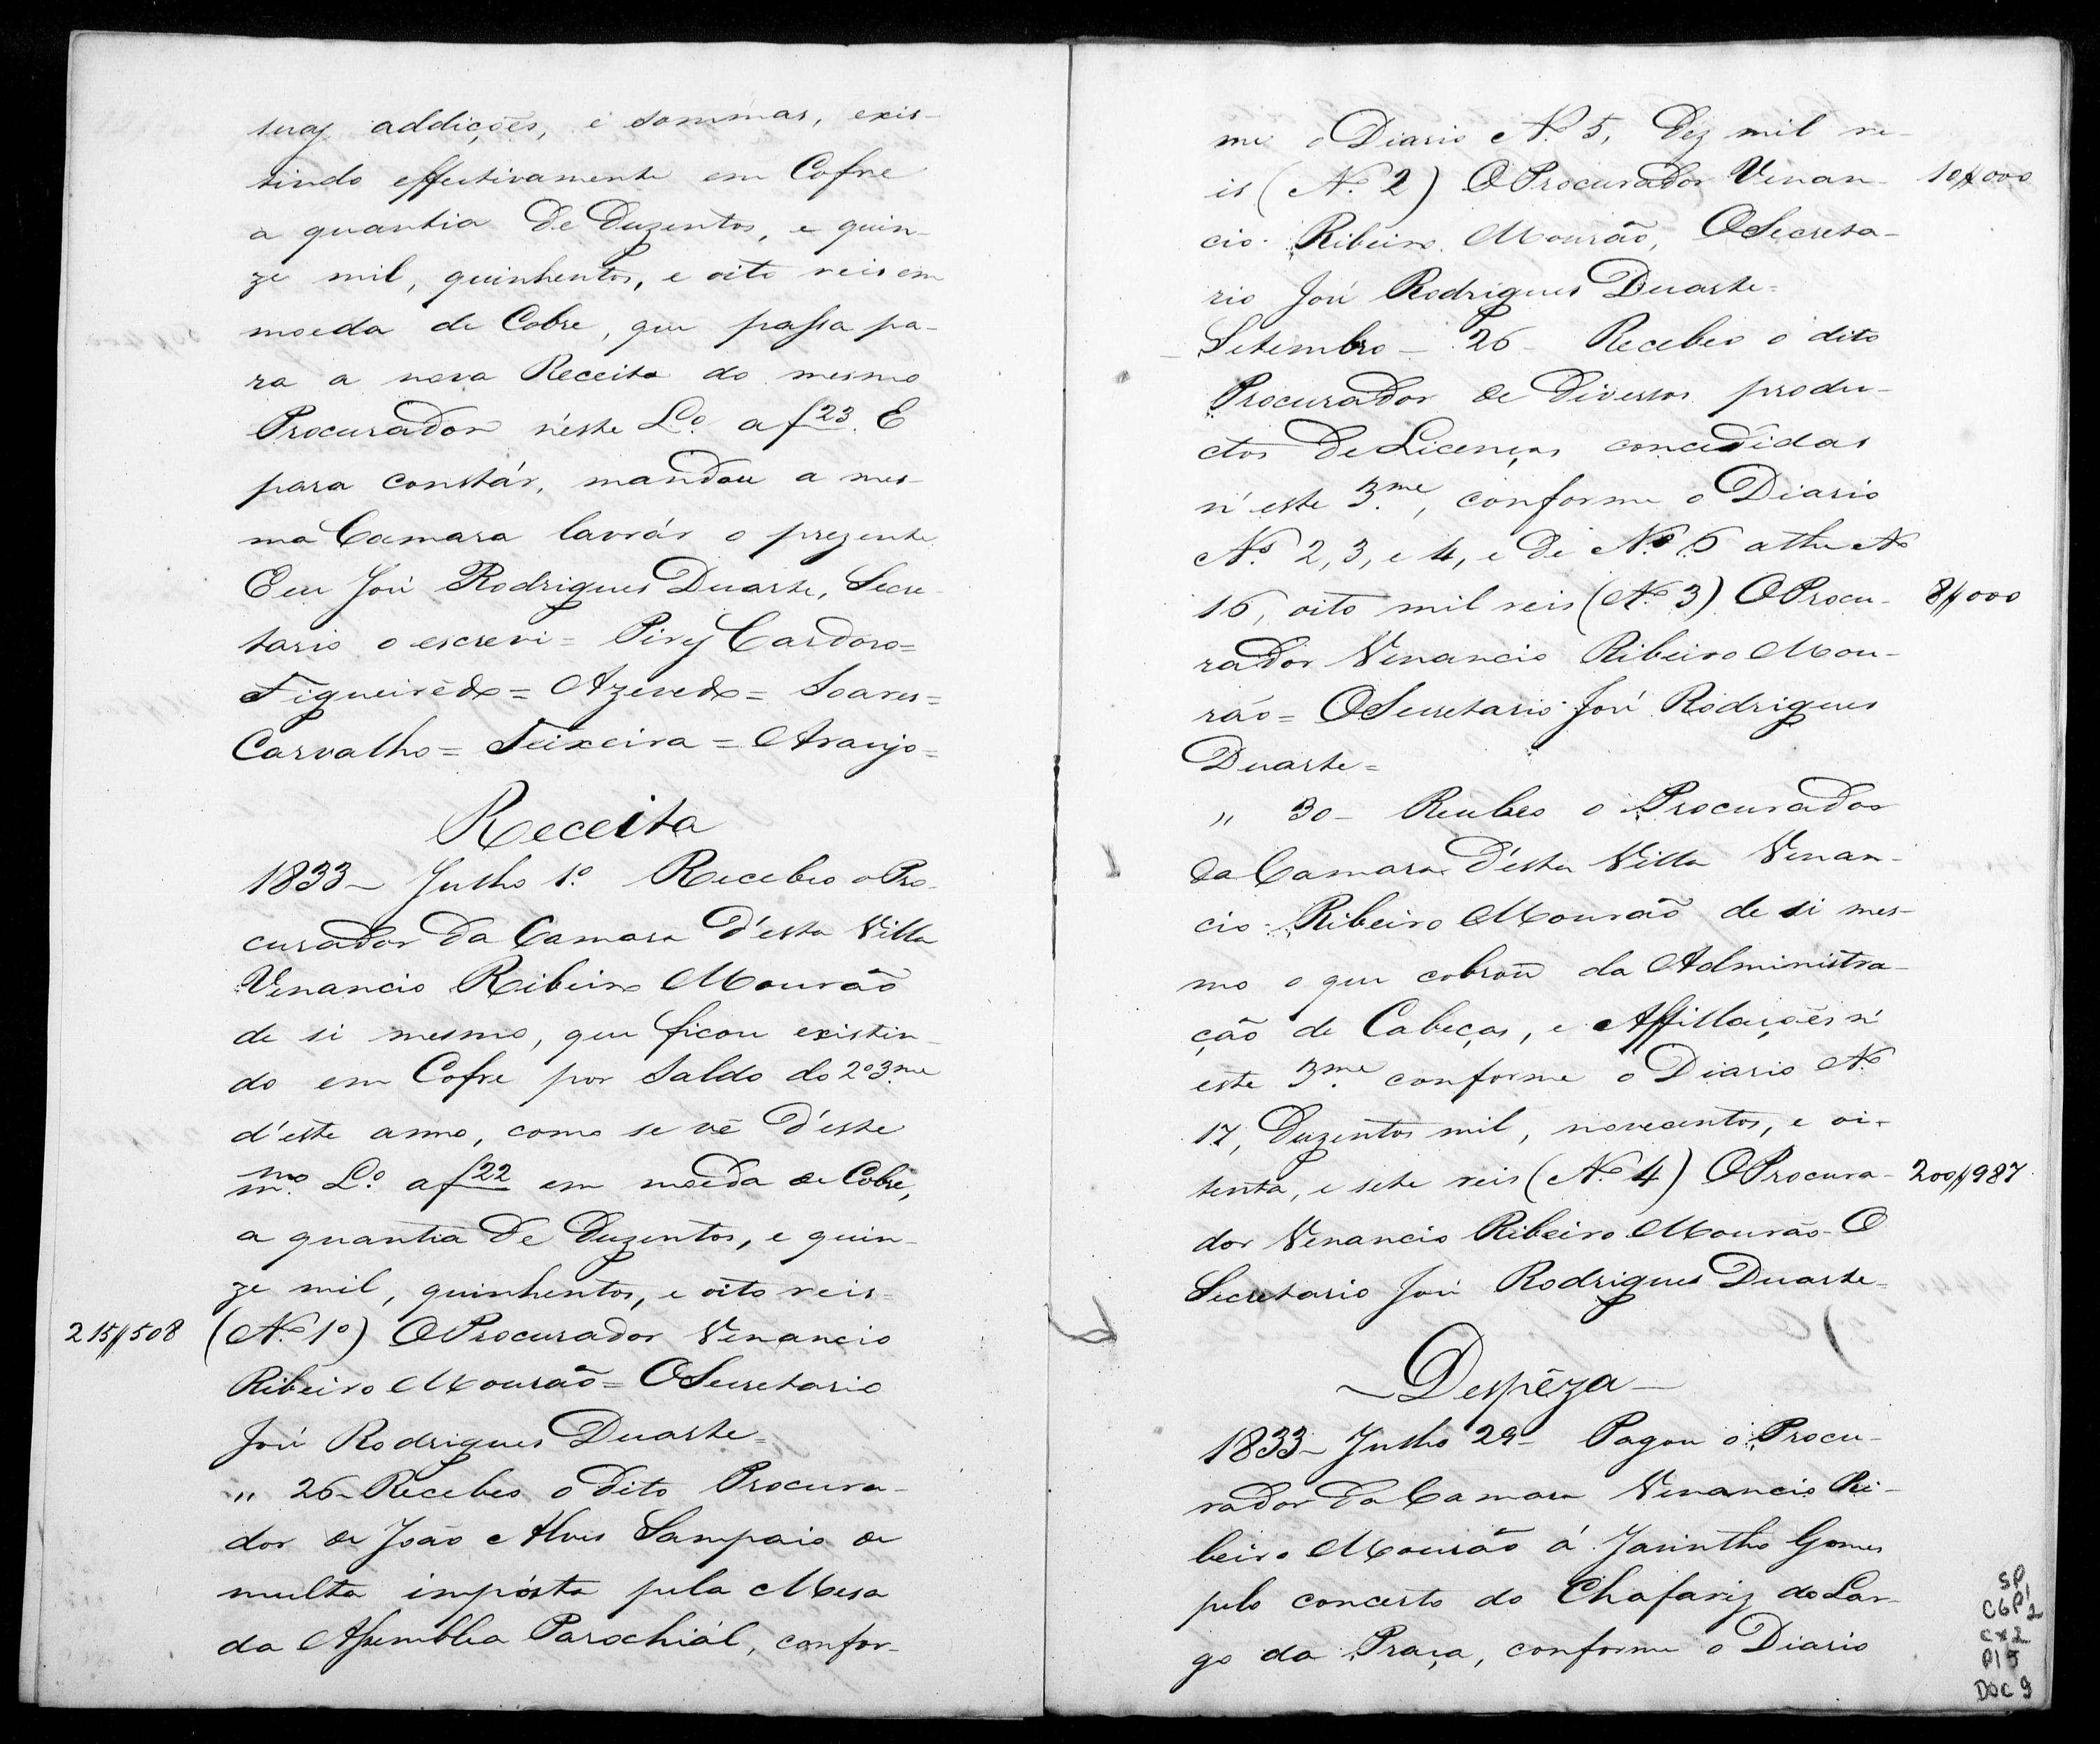 suas addições, e sommas, exis-
tindo effectivamente em Cofre
a quantia de Duzentos, e quin-
ze mil, quinhentos, e oito reis em
moeda de Cobre, que passa pa-
ra a nova Receita do mesmo
Procurador n'este L.o a f 23. E
para constár, mandou a mes-
ma Camara lavrár o prezente
E eu José Rodrigues Duarte, Secre
tario o escrevi = Pires Cardoso =
Figueirêdo = Azevedo = Soares =
Carvalho = Teixeira = Araujo =
Receita
1833 - Julho 1.o Recebeo o Pro-
curador da Camara d'esta Villa
Venancio Ribeiro Mourão
de si mesmo, que ficou existin-
do em Cofre por Saldo do 2.o 3.me
d'este anno, como se vê d'este
m.mo L.o a f 22 em moeda de Cobre,
a quantia de Duzentos, e quin-
ze mil, quinhentos, e oito reis =
215$508 (N.o 1.o) O Procurador Venancio
Ribeiro Mourão = O Secretario
José Rodrigues Duarte =
" 26 - Recebeo o dito Procura-
dor de João Alves Sampaio de
multa impósta pela Mesa
da Assemblea Parochiál, confor-
me o Diario N.o 5, Dez mil re-
is (N.o 2) O Procurador Venan- 10$000
cio Ribeiro Mourão, O Secreta-
rio José Rodrigues Duarte =
Setembro - 26 - Recebeo o dito
Procurador de Diversos produ-
ctos de Licenças concedidas
n'este 3.me, conforme o Diario
N.o 2, 3, e 4, e de N.o 6 athe N.o
16, oito mil reis (N.o 3) O Procu- 8$000
rador Venancio Ribeiro Mou-
rão = O Secretario José Rodrigues
Duarte =
" 30 - Recebeo o Procurador
da Camara d'esta Villa Venan-
cio Ribeiro Mourão de si mes-
mo o que cobrou da Administra-
ção de Cabeças, e Affillações n'
este 3.me conforme o Diario N.o
17, Duzentos mil, novecentos, e oi-
tenta, e sete reis (N.o 4) O Procura- 200$987
dor Venancio Ribeiro Mourão - O
Secretario José Rodrigues Duarte =
- Despêza -
1833 - Julho 29 - Pagou o Procu-
rador da Camara Venancio Ri-
beiro Mourão á Jacintho Gomes
pelo concerto do Chafariz do Lar-
go da Praça, conforme o Diario
SP
C6P1
2
cx2
P15
DOC 9